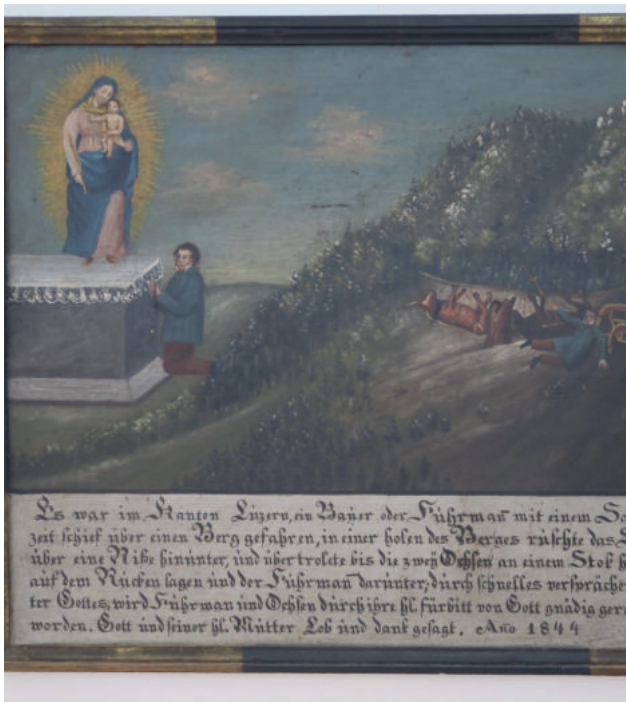 Es war im Kanton Lüzern, ein Baŭer oder Fŭhrman̄ mit einem
zeit schief ŭber einen Berg gefahren, in einer holen des Berges rŭschte das
ŭber eine Riße hinŭnter, ŭnd ŭbertrolete bis die zweÿ Ochsen an einem Stok
auf dem Rŭcken lagen ŭnd der Fŭhrman̄ darŭnter, dŭrch schnelles
ter Gottes, wird Fŭhrman ŭnd Ochsen dŭrch ihre hl. fŭrbitt von Gott gnädig
worden. Gott ŭnd seiner hl. Mŭtter Lob ŭnd dank gesagt. Año 1844